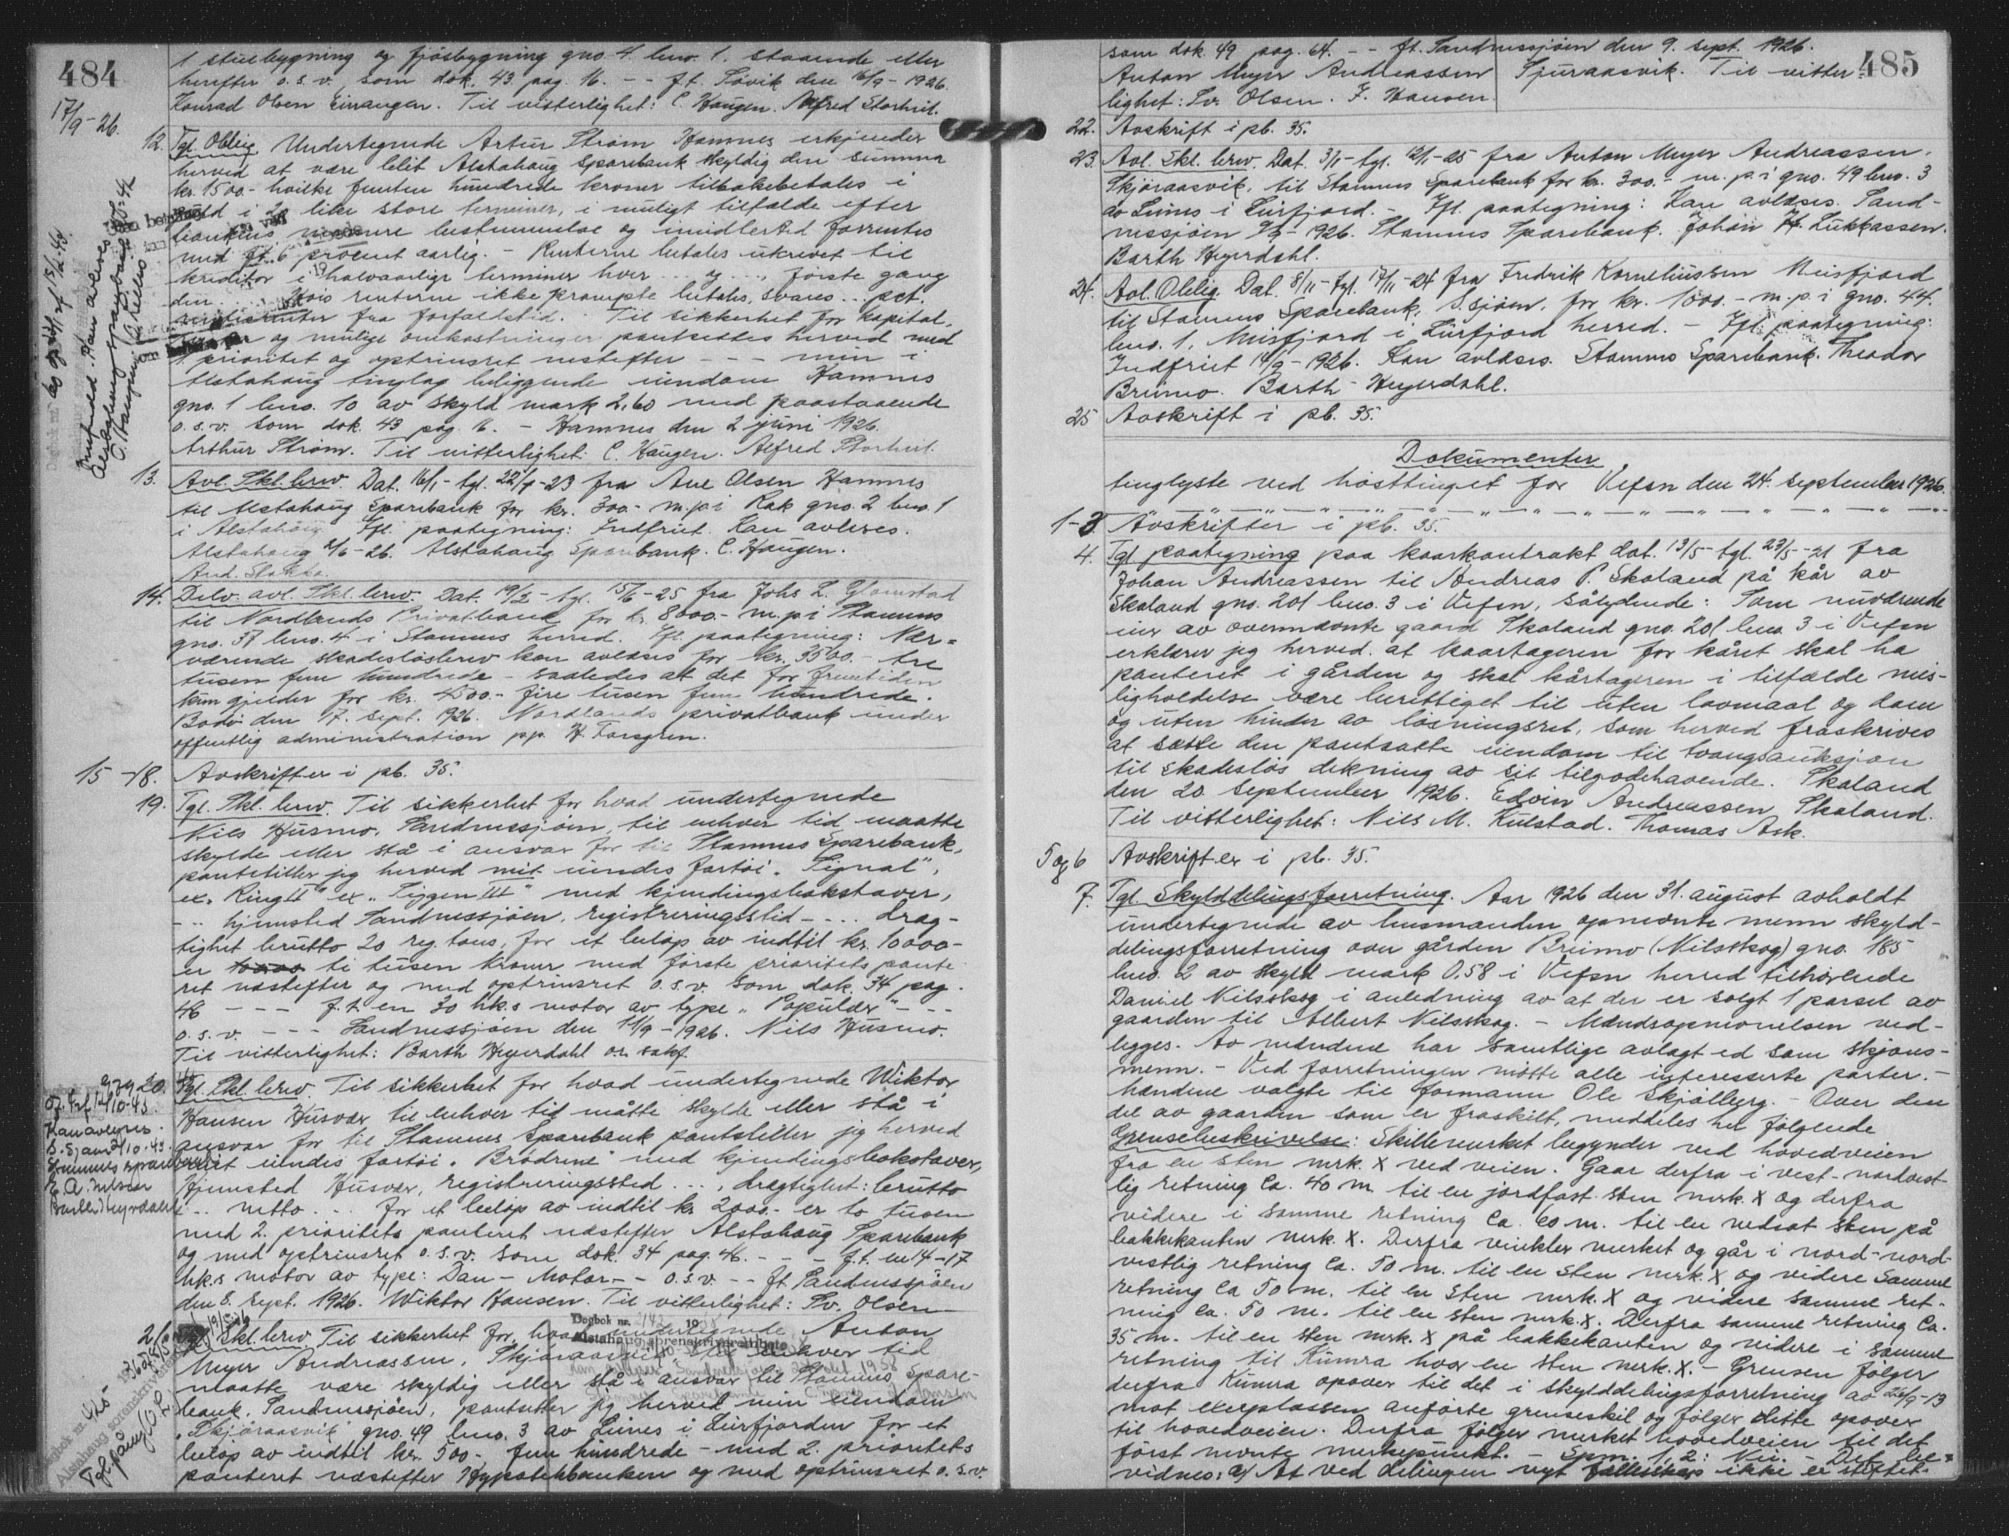 484
17/9-26.
1 stuebygning og fjösbygning gno. 4. bno. 1. staaende eller
herefter o.s.v. som dok. 43 pag. 16. - - f.t. Søvik den 16/9-1926.
Konrad Olsen Einangen. Til vitterlighet: C. Haugen. Alfred Storhit.
12. Tgl. Oblig. Undertegnede Artur Strøm Hamnes erkjender
herved at være blit Alstahaug Sparebank skyldig den summa
kr. 1500.- hvilke femten hundrede kroner tilbakebetales i
i 20 like store terminer, i muligt tilfælde efter
bankens nærmere bestemmelse og imidlertid forrentes
med f.t. 6 procent aarlig. - Renterne betales ukrævet til
kreditor i halvaarlige terminer hver ... og ..., første gang
den ... Hvis renterne ikke prompte betales, svares ... pct.
fra forfaldstid. Til sikkerhet for kapital,
og mulige omkostninger pantsettes herved med
1 prioritet og optrinsret nestefter - - - min i
Alstahaug tinglag beliggende eiendom Hamnes
gno. 1 bno. 10 av skyld mark 2,60 med paastaaende
o.s.v. som dok. 43 pag. 16. - Hamnes den 2 juni 1926.
Arthur Strøm. Til vitterlighet: C. Haugen. Alfred Storhit.
13. Avl. Skl. brev. Dat. 16/1- tgl. 22/9-23 fra Ane Olsen Hamnes
til Alstahaug Sparebank for kr. 300.- m.p. i Rak gno. 2 bno. 1
i Alstahaug. Ifl. paategning: Indfriet. Kan avleses.
Alstahaug 2/6-26. Alstahaug Sparebank. C. Haugen.
And. Slokko.
14. Delv. avl. Skl. brev. Dat. 19/2- tgl. 15/6-25 fra Johs L. Glomstad
til Nordlands Privatbank for kr. 8000.- m.p. i Stamnes
gno. 37 bno. 4 i Stamnes herred. Ifl. paategning: Nær-
værende skadesløsbrev kan avleses for kr. 3500.- tre
tusen fem hundrede - saaledes at det for fremtiden
kun gjelder for kr. 4500.- fire tusen fem hundrede.
Bodø den 17. sept. 1926. Nordlands privatbank under
offentlig administration pp. H. Forsgren.
15-18. Avskrifter i pb. 35.
19. Tgl. Skl. brev. Til sikkerhet for hvad undertegnede
Nils Husmo, Sandnessjøen, til enhver tid maatte
skylde eller stå i ansvar for til Stamnes Sparebank,
pantstiller jeg herved mit eiendes fartøi "Signal",
ex. "Ring II" ex "Tiggen III" med kjendingsbokstaver,
- - hjemsted Sandnessjøen, registreringssted - ... dræg-
tighet brutto 20 reg. tons, for et beløp av indtil kr. 10000.-
er ti tusen kroner med første prioritets pante-
ret næstefter og med optrinsret o.s.v. som dok. 34 pag.
46 - - - f.t. en 30 hk.s motor av type "Populær" - - -
o.s.v. - - - Sandnessjøen den 14/9-1926. Nils Husmo.
Til vitterlighet: Barth Heyerdahl o.r. sakf.
20. Tgl. Skl. brev. Til sikkerhet for hvad undertegnede Wiktor
Hansen Husvær til enhver tid måtte skylde eller stå i
ansvar for til Stamnes Sparebank pantstiller jeg herved
eiendes fartøi "Brødrene" med kjendingsbokstaver,
Hjemsted Husvær, registreringssted ..., drægtighet: brutto
... netto ... for et beløp av indtil kr. 2000.- er to tusen
med 2. prioritets panteret næstefter Alstahaug Sparebank
og med optrinsret o.s.v. som dok. 34 pag. 46. - - - f.t. en 14-17
hk.s motor av type: Dan-Motor - - o.s.v. - - f.t. Sandnessjøen
den 8. sept. 1926. Wiktor Hansen. Til vitterlighet: Sv. Olsen
Skl. brev. Til sikkerhet for hvad undertegnede Anton
Meyer Andreassen, Skjøraasvik til enhver tid
maatte være skyldig eller stå i ansvar til Stamnes Spare-
bank, Sandnessjøen, pantsetter jeg herved min eiendom
"Skjøraasvik" gno. 49 bno. 3 av Leines i Leirfjorden for et
beløp av indtil kr. 500.- fem hundrede - med 2. prioritets
panteret næstefter Hypotekbanken og med optrinsret o.s.v.
Dogbok nr. 2142 1958
Alstahaug sorenskriverembete
485
som dok. 49 pag. 64. - - f.t. Sandnessjøen den 9. sept. 1926.
Anton Meyer Andreassen Sjuraasvik. Til vitter-
lighet: Sv. Olsen. F. Hansen.
22. Avskrift i pb. 35.
23. Avl. Skl. brev. Dat. 3/1- tgl. 12/1-25 fra Anton Meyer Andreassen,
Skjøraasvik, til Stamnes Sparebank for kr. 300.- m.p. i gno. 49 bno. 3
av Leines i Leirfjord. - Ifl. paategning: Kan avleses. Sand-
nessjøen 9/9-1926. Stamnes Sparebank. Johan H. Lukkassen.
Barth Heyerdahl.
24. Avl. Oblig. Dat. 8/11- tgl. 17/11-24 fra Fredrik Korneliussen Meisfjord
til Stamnes Sparebank, S.sjøen, for kr. 1000.- m.p. i gno. 44
bno. 1, Meisfjord i Leirfjord herred. - Ifl. paategning:
Indfriet 14/9-1926. Kan avleses. Stamnes Sparebank. Theodor
Brumo. Barth-Heyerdahl.
25 Avskrift i pb. 35.
Dokumenter
tinglyste ved høsttinget for Vefsn den 24. september 1926.
1-3 Avskrifter i pb. 35.
4. Tgl. paategning paa kaarkontrakt dat. 13/5- tgl. 23/5-21 fra
Johan Andreassen til Andreas P. Skaland på kår av
Skaland gno. 201 bno. 3 i Vefsn, sålydende: Som nuværende
eier av ovennævnte gaard Skaland gno. 201 bno. 3 i Vefsn
erklærer jeg herved at kaartageren for kåret skal ha
panteret i gården og skal kårtageren i tilfælde mis-
ligholdelse være berettiget til uten lovmaal og dom
og uten hinder av løsningsret, som herved fraskrives
at sætte den pantsatte eiendom til tvangsauksjon
til skadesløs dekning av sit tilgodehavende. Skaland
den 20. september 1926. Edvin Andreassen Skaland.
Til vitterlighet: Nils M. Kulstad. Thomas Ask.
5 og 6 Avskrifter i pb. 35.
7. Tgl. Skylddelingsforretning. Aar 1926 den 31. august avholdt
undertegnede av lensmanden opnevnte menn skyld-
delingsforretning over gården Breimo (Nilsskog) gno. 185
bno. 2 av skyld mark 0.58 i Vefsn herred tilhørende
Daniel Nilsskog i anledning av at der er solgt 1 parsel av
gaarden til Albert Nilsskog. - Mændsopnevnelsen ved-
legges. Av mændene har samtlige avlagt ed som skjøns-
menn. - Ved forretningen møtte alle interesserte parter. -
Mændene valgte til formann Ole Skjølberg. - Over den
del av gaarden som er fraskilt, meddeles her følgende
Grensebeskrivelse: Skillemerket begynder ved hovedveien
fra en sten merk. X ved veien. Gaar derfra i vest-nordvest-
lig retning ca. 40 m. til en jordfast sten merk. X og derfra
videre i samme retning ca. 60 m. til en nedsat sten på
bakkekanten merk. X. Derfra vinkler merket og går i nord-nord-
vestlig retning ca. 50 m. til en sten merk. X og videre samme
retning ca 50 m. til en sten merk. X og videre samme ret-
ning ca. 50 m. til en sten merk. X. Derfra samme retning ca.
35 m. til en sten merk. X på bakkekanten og videre i samme
retning til Kumra hvor en sten merk. X. - Grensen følger
derfra Kumra opover til det i skylddelingsforretning av 26/9-13
mot exerplassen anførte grenseskil og følger dette opover
til hovedveien. Derfra følger merket hovedveien til det
først nevnte merkepunkt. - Spm. 1, 2: Nei. - Det be-
vidnes: a) At ved delingen nyt fellesskap ikke er stiftet.